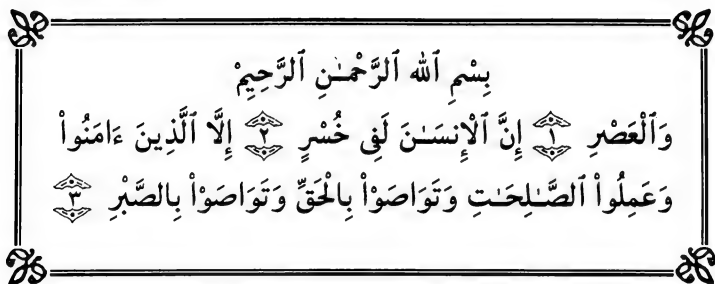 بِسْمِ ٱللهِ ٱلرَّحْمَـٰنِ ٱلرَّحِيمِ
وَٱلْعَصْرِ ١ إِنَّ ٱلْإِنسَـٰنَ لَفِى خُسْرٍ ٢ إِلَّا ٱلَّذِينَ ءَامَنُوا۟
وَعَمِلُوا۟ ٱلصَّـٰلِحَـٰتِ وَتَوَاصَوْا۟ بِٱلْحَقِّ وَتَوَاصَوْا۟ بِٱلصَّبْرِ ٣